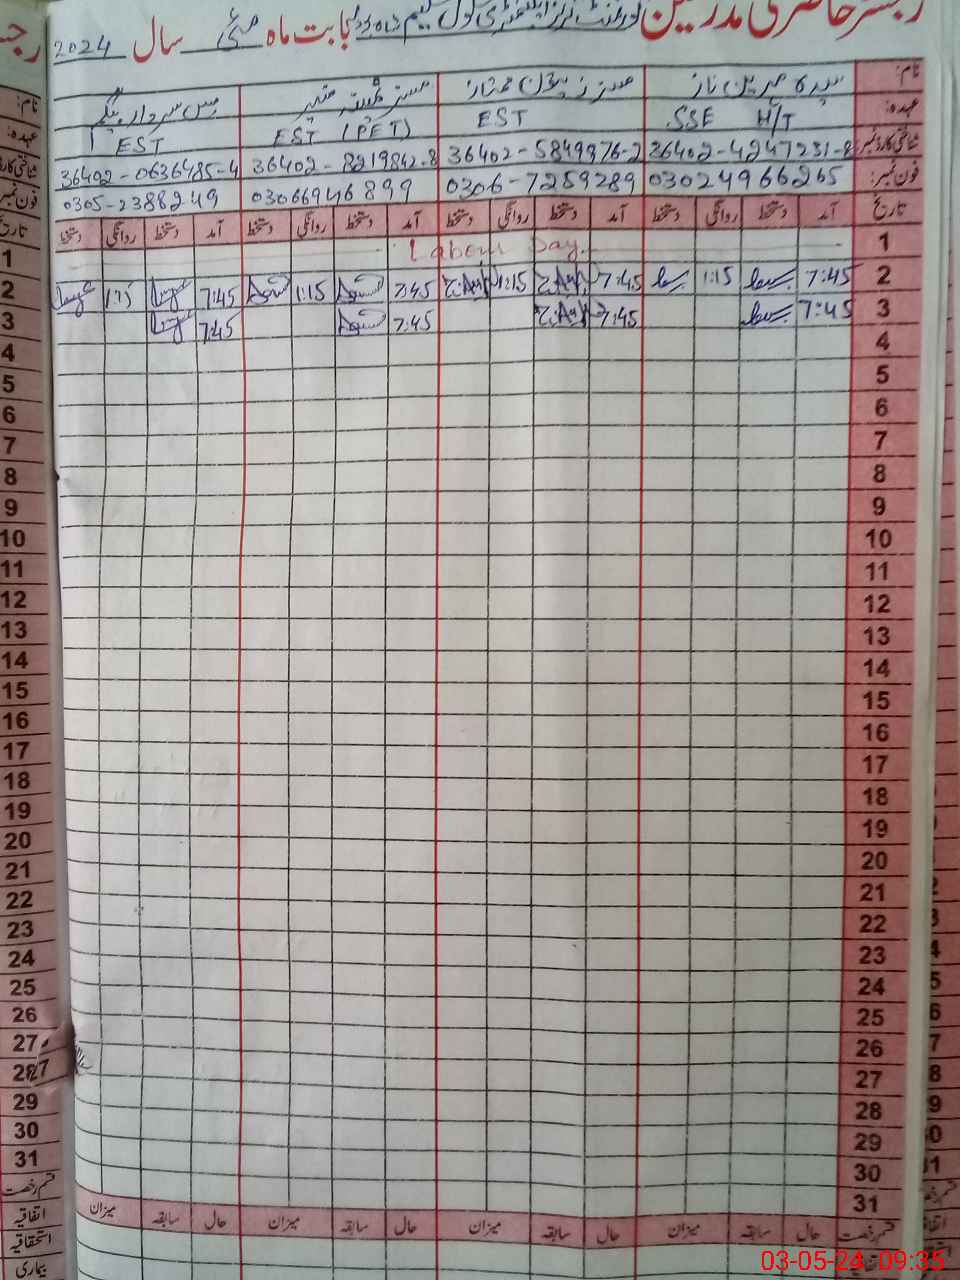 رجسٹر حاضری مدرسین گورنمنٹ گرلز ایلیمنٹری سکول سلیم بابت ماہ مئی سال 2024
نام: سیدہ مہرین ناز مسز زیتون ممتاز مسز منیر مس سردار بیگم
عہدہ: SSE H/T EST EST (PET) EST
شناختی کارڈ نمبر: 36402-4247231-8 36402-5849976-2 36402-8219842-8 36402-0636485-4
فون نمبر: 03024966265 0306-7259289 03066946899 0305-2388249
تاریخ آمد دستخط روانگی دستخط آمد دستخط روانگی دستخط آمد دستخط روانگی دستخط آمد دستخط روانگی دستخط
1 Labour Day
2 7:45 1:15 7:45 1:15 7:45 1:15 7:45 1:15
3 7:45 7:45 7:45 7:45
4
5
6
7
8
9
10
11
12
13
14
15
16
17
18
19
20
21
22
23
24
25
26
27
28
29
30
31
قسم رخصت حال سابقہ میزان حال سابقہ میزان حال سابقہ میزان حال سابقہ میزان
رجسٹر
نام:
عہدہ:
شناختی کارڈ نمبر:
فون نمبر:
تاریخ
1
2
3
4
5
6
7
8
9
10
11
12
13
14
15
16
17
18
19
20
21
22
23
24
25
26
27
28
29
30
31
قسم رخصت
اتفاقیہ
استحقاقیہ
بیماری
03-05-24 09:35